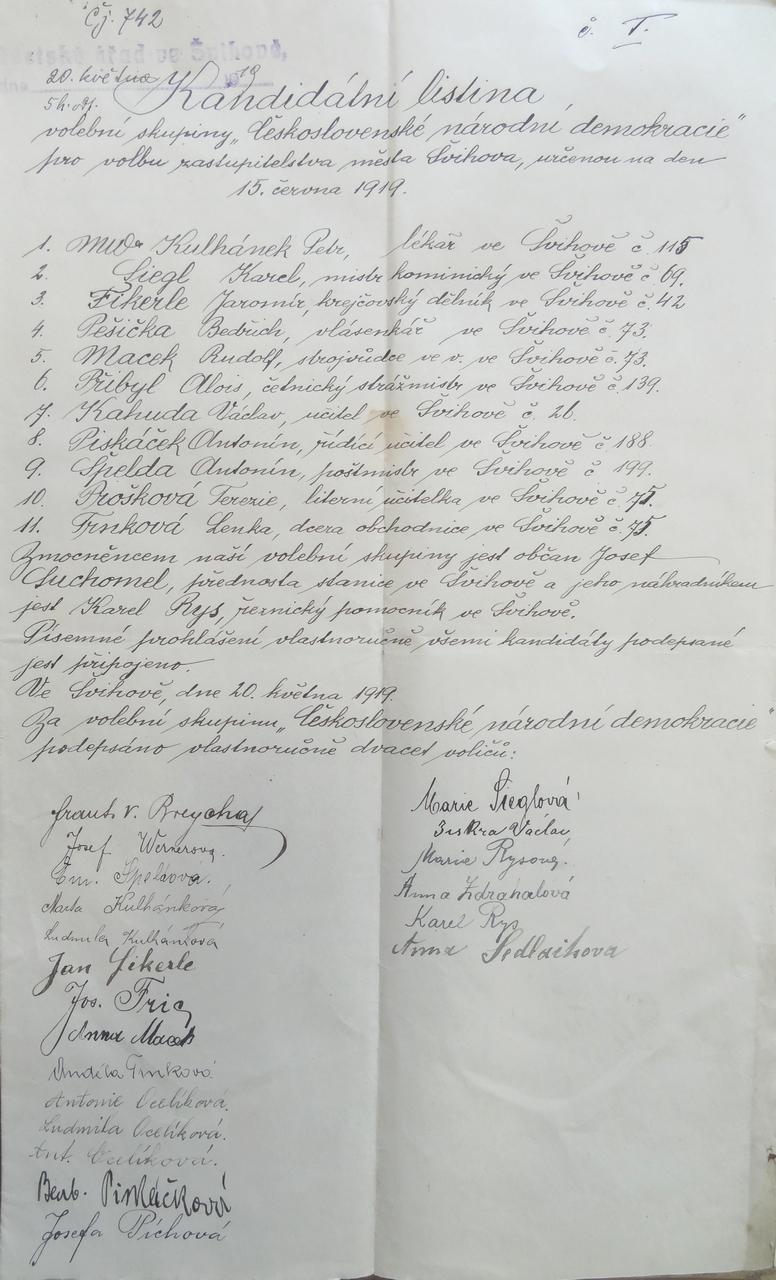 Čj. 742
č. I.
Městské úřad ve Švihově,
dne 20. května 1919
5 h. odp.
Kandidátní listina
volební skupiny „Československé národní demokracie"
pro volbu zastupitelstva města Švihova, určenou na den
15. června 1919.
1. MUDr Kulhánek Petr, lékař ve Švihově č. 115
2. Siegl Karel, mistr kominický ve Švihově č. 69.
3. Fikerle Jaromír, krejčovský dělník ve Švihově č. 42
4. Pešička Bedřich, vlásenkář ve Švihově č. 73.
5. Macek Rudolf, strojvůdce ve v. ve Švihově č. 73.
6. Přibyl Alois, četnický strážmistr ve Švihově č. 139.
7. Kahuda Václav, učitel ve Švihově č. 26.
8. Piskáček Antonín, řídící učitel ve Švihově č. 188.
9. Špelda Antonín, poštmistr ve Švihově č 199.
10. Prošková Terezie, literní učitelka ve Švihově č. 75.
11. Trnková Lenka, dcera obchodnice ve Švihově č. 75.
Zmocněncem naší volební skupiny jest občan Josef
Suchomel, přednosta stanice ve Švihově a jeho náhradníkem
jest Karel Rys, řeznický pomocník ve Švihově.
Písemné prohlášení vlastnoručně všemi kandidáty podepsané
jest připojeno.
Ve Švihově, dne 20. května 1919.
Za volební skupinu „Československé národní demokracie"
podepsáno vlastnoručně dvacet voličů:
Frant. V. Breycha
Josef
Em. Špeldová.
Marta Kulhánková
Ludmila Kulhánková
Jan Fikerle
Jos. Fric
Anna Macek
Anděla Trnková
Antonie Ocelíková.
Ludmila Ocelíková.
Ant. Ocelíková.
Barb. Piskáčková
Josefa Píchová
Marie Sieglová
Jiskra Václav
Marie Rysová.
Anna Zdrahalová
Karel Rys
Anna Sedlaihova